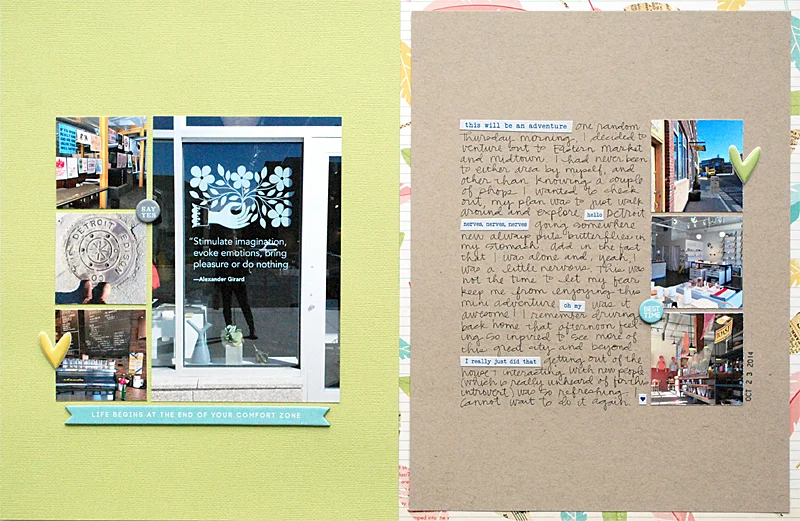 SAY YES
DETROIT EDISON CO
"Stimulate imagination,
evoke emotions, bring
pleasure or do nothing
—Alexander Girard
LIFE BEGINS AT THE END OF YOUR COMFORT ZONE
this will be an adventure one random
Thursday morning. I decided to
venture out to Eastern Market
and midtown. I had never been
to either area by myself, and
other than knowing a couple
of shops I wanted to check
out, my plan was to just walk
around and explore. hello Detroit
nerves, nerves, nerves going somewhere
new always puts butterflies in
my stomach. add in the fact
that I was alone and, yeah, I
was a little nervous. This was
not the time to let my fear
keep me from enjoying this
mini adventure. oh my was it
awesome! I remember driving
back home that afternoon feel
ing so inspired to see more of
this great city and beyond.
I really just did that getting out of the
house & interacting with new people
(which is really unheard of for this
introvert) was so refreshing.
Cannot wait to do it again.
BEST TIME
OCT 23 2014